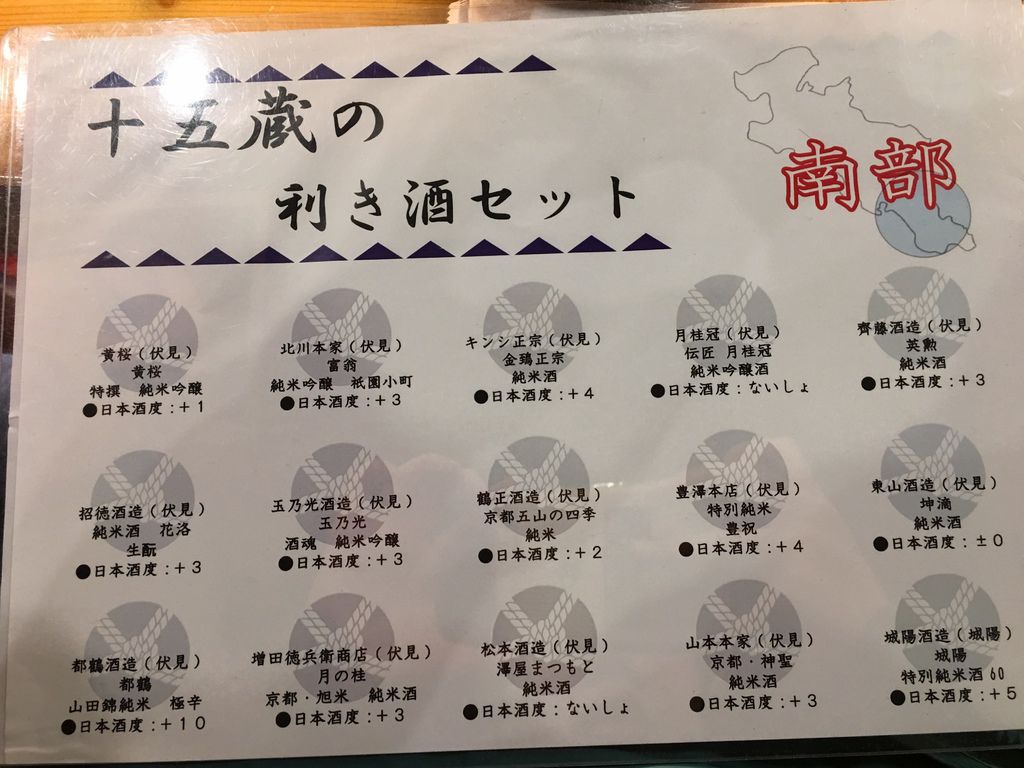 十五蔵の
利き酒セット
南部
黄桜（伏見）
黄桜
特撰　純米吟醸
●日本酒度：＋１
北川本家（伏見）
富翁
純米吟醸　祇園小町
●日本酒度：＋３
キンシ正宗（伏見）
金鵄正宗
純米酒
●日本酒度：＋４
月桂冠（伏見）
伝匠 月桂冠
純米吟醸酒
●日本酒度：ないしょ
齊藤酒造（伏見）
英勲
純米酒
●日本酒度：＋３
招徳酒造（伏見）
純米酒　花洛
生酛
●日本酒度：＋３
玉乃光酒造（伏見）
玉乃光
酒魂　純米吟醸
●日本酒度：＋３
鶴正酒造（伏見）
京都五山の四季
純米
●日本酒度：＋２
豊澤本店（伏見）
特別純米
豊祝
●日本酒度：＋４
東山酒造（伏見）
坤滴
純米酒
●日本酒度：±０
都鶴酒造（伏見）
都鶴
山田錦純米　極辛
●日本酒度：＋１０
増田徳兵衛商店（伏見）
月の桂
京都・旭米　純米酒
●日本酒度：＋３
松本酒造（伏見）
澤屋まつもと
純米酒
●日本酒度：ないしょ
山本本家（伏見）
京都・神聖
純米酒
●日本酒度：＋３
城陽酒造（城陽）
城陽
特別純米酒60
●日本酒度：＋５